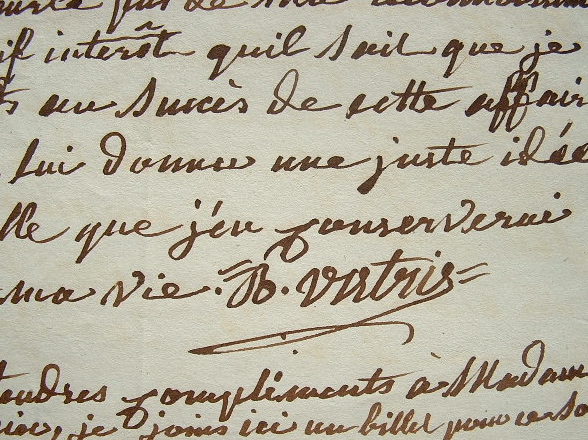 pas de
if interest qu'il sait que je
ts au succès de cette affair
lui donner une juste idée
lle que j'en conserverai
ma vie. R. Vestris
tendres compliments à Madam
je joins ici un billet pour ce so